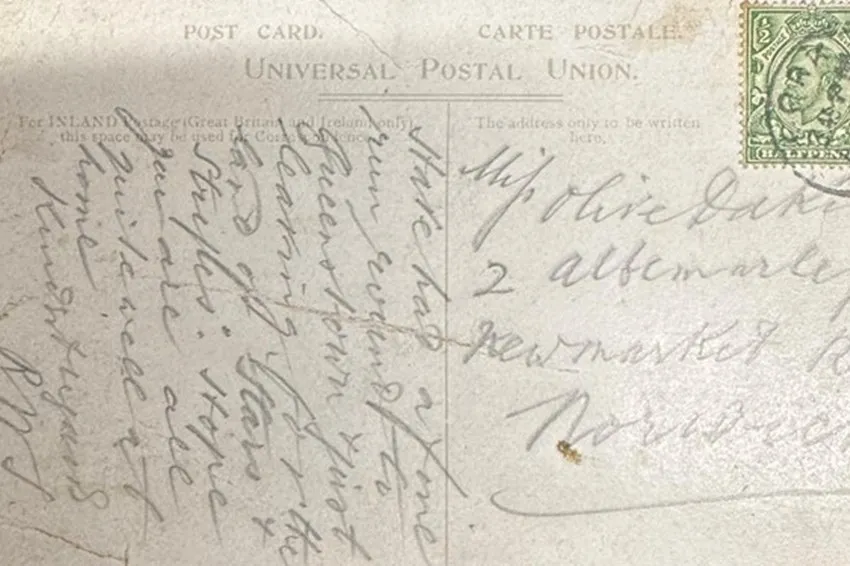 POST CARD. CARTE POSTALE.
UNIVERSAL POSTAL UNION.
For INLAND Postage (Great Britain and Ireland only)
this space may be used for Correspondence.
The address only to be written
here.
Have had a fine
run round to
Queenstown just
leaving for the
land of Stars &
Stripes. Hope
you are all
quite well at
home
Kind regards
Miss Olive Daki
2 Albemarle
Newmarket R
Norwic
HALFPEN